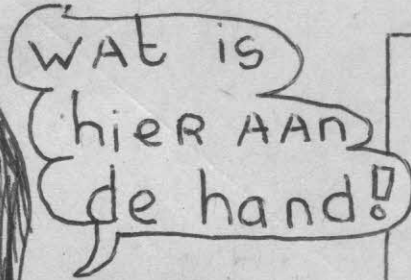 WAt is
hieR AAn
de hand!